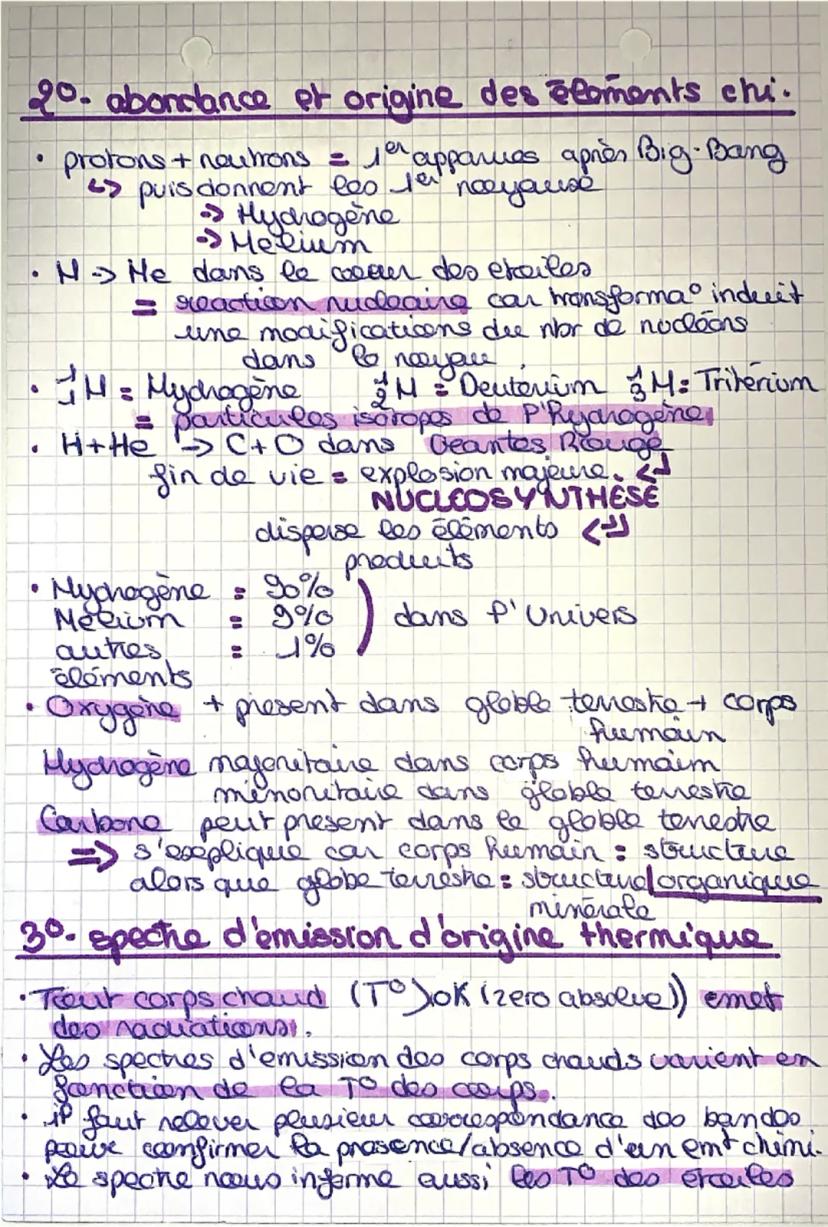 2°- abondance et origine des éléments chi.
• protons + neutrons = 1er apparues après Big-Bang
↳ puis donnent les 1er noeyause
=> Hydrogène
=> Hélium
• H -> He dans le coeur des etoiles
= reaction nucleaire car transforma° induit
une modifications du nbr de nucléons
dans le noyau.
• ¹₁H = Hydrogène ¹₂H = Deuterium ¹₃H = Tritérium
= particules isotopes de l'Hydrogène
• H + He -> C + O dans Geantes Rouge
fin de vie = explosion majeure. ↲
NUCLEOSYNTHÈSE
disperse les éléments <=
produits
• Hydrogène = 90%
Hélium = 9% ) dans l'Univers
autres = 1%
éléments
• Oxygène + present dans globle terrestre + corps
humain
Hydrogène majoritaire dans corps humain
minoritaire dans globle terrestre
Carbone peut present dans le globle terrestre
=> s'explique car corps humain = structure
alors que globe terrestre = structure|organique
minérale
3°- spectre d'emission d'origine thermique
• Tout corps chaud (T° >0K (zero absolue)) emet
des radiations.
• Les spectres d'emission des corps chauds varient en
fonction de la T° des corps.
• il faut relever plusieur correspondance des bandes
pour confirmer la presence/absence d'un emt chimi.
• Le spectre nous informe aussi les T° des étoiles